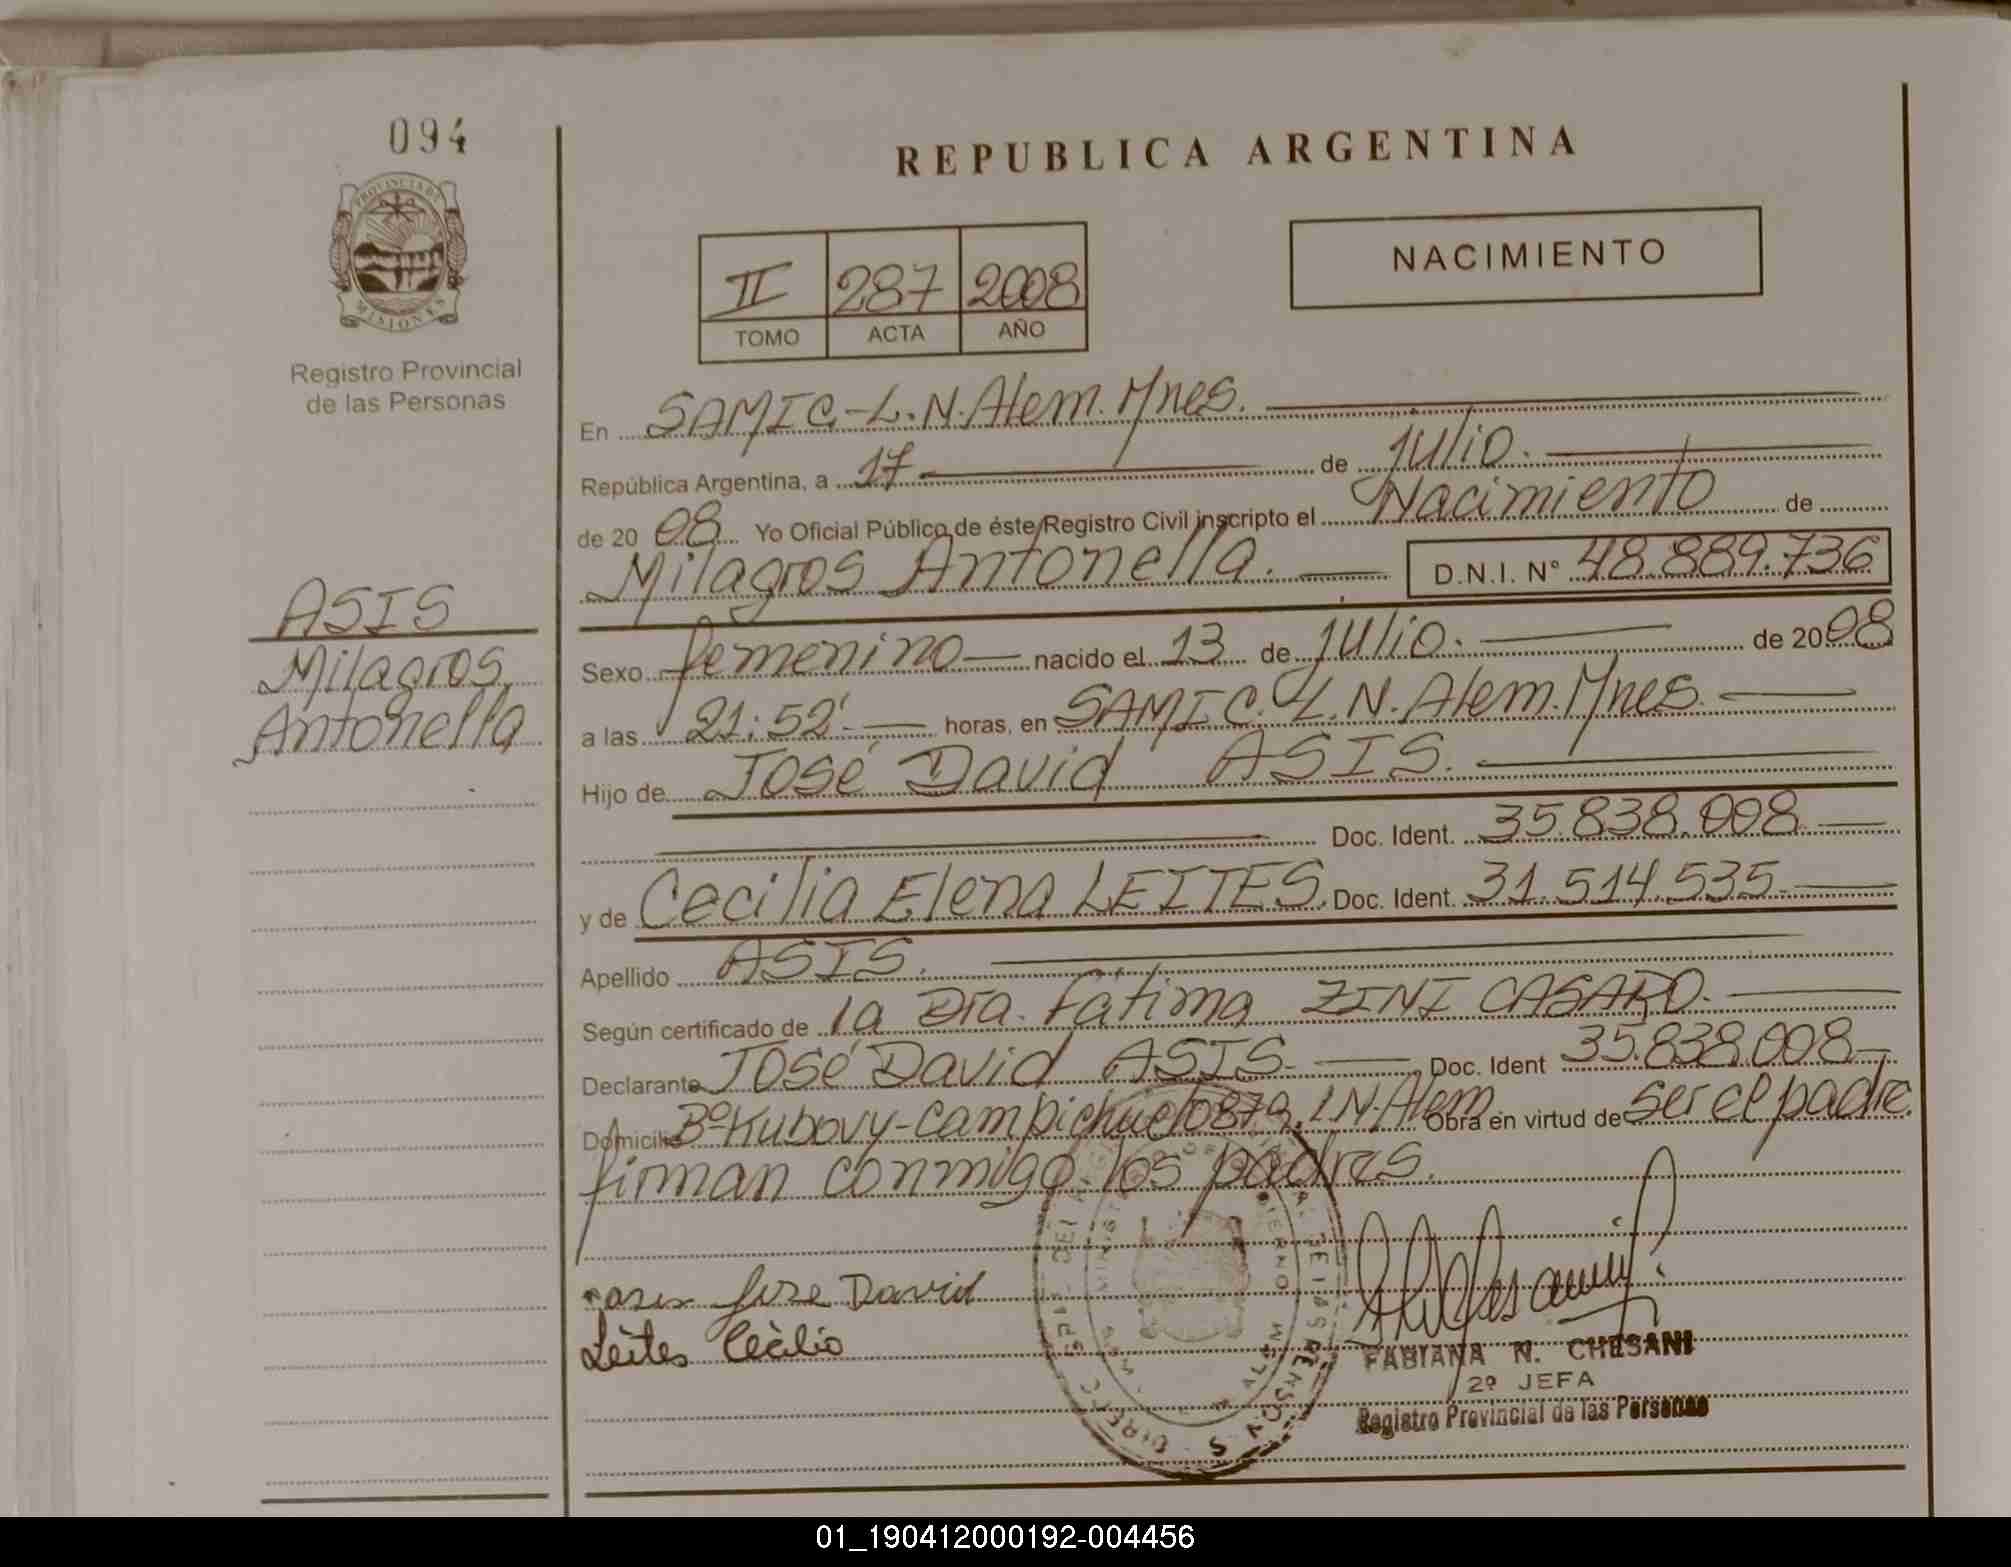 094
REPUBLICA ARGENTINA
PROVINCIA DE
MISIONES
Registro Provincial
de las Personas
II 287 2008
TOMO ACTA AÑO
NACIMIENTO
En SAMIC-L.N.Alem.Mnes.
República Argentina, a 17 de julio.
de 20 08 Yo Oficial Público de éste Registro Civil inscripto el Nacimiento de
Milagros Antonella. D.N.I. N° 48.889.736
ASIS
Milagros
Antonella
Sexo femenino nacido el 13 de julio. de 20 08
a las 21:52' horas, en SAMIC. L.N.Alem.Mnes.
Hijo de José David ASIS.
Doc. Ident. 35.838.008
y de Cecilia Elena LEITES. Doc. Ident. 31.514.535
Apellido ASIS.
Según certificado de la Dra. Fátima ZINI CASARO.
Declarante José David ASIS. Doc. Ident 35.838.008
Domicilio B° Kubovy-Campichuelo 879. L.N.Alem Obra en virtud de ser el padre.
firman conmigo los padres.
Jose David
Leites Cecilia
FABIANA N. CHESANI
2º JEFA
Registro Provincial de las Personas
01_190412000192-004456